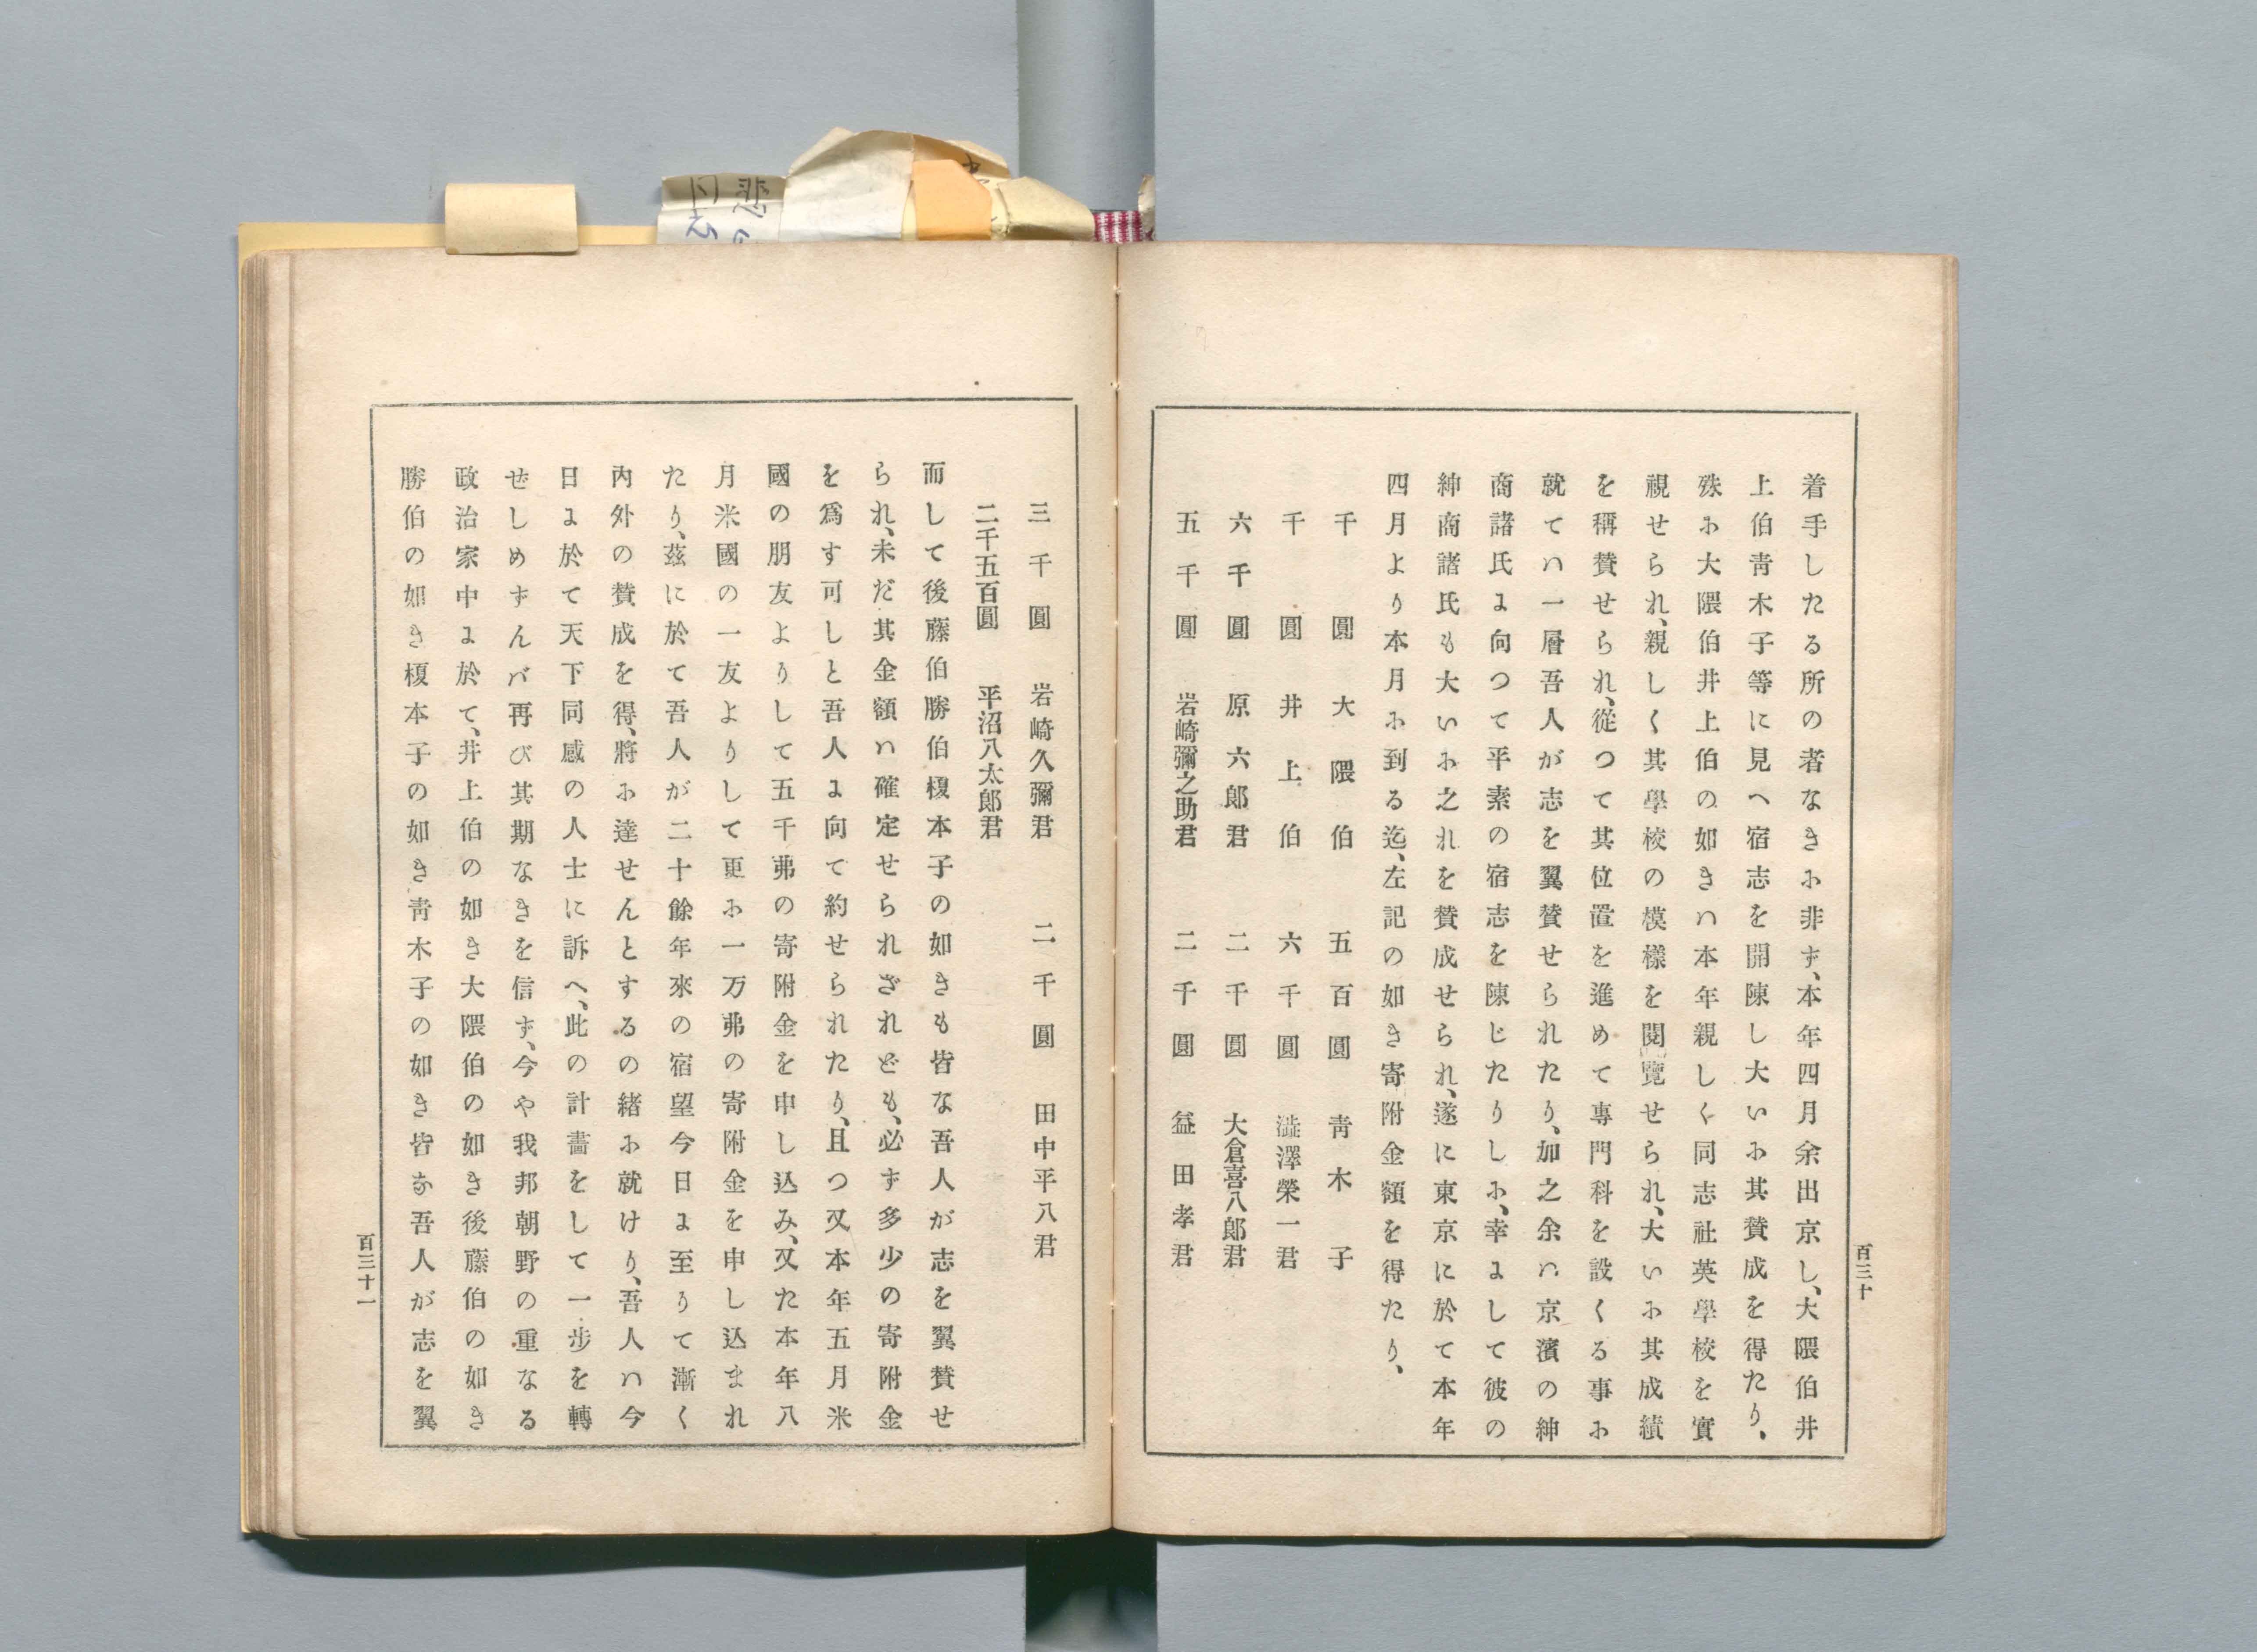 着手したる所の者なきに非ず、本年四月余出京し、大隈伯井
上伯靑木子等に見へ宿志を開陳し大いに其賛成を得たり、
殊に大隈伯井上伯の如きハ本年親しく同志社英學校を實
視せられ、親しく其學校の模樣を閱覽せられ、大いに其成績
を稱賛せられ、從つて其位置を進めて專門科を設くる事に
就てハ一層吾人が志を翼賛せられたり、加之余ハ京濱の紳
商諸氏に向つて平素の宿志を陳じたりしに、幸にして彼の
紳商諸氏も大いに之れを賛成せられ、遂に東京に於て本年
四月より本月に到る迄、左記の如き寄附金額を得たり、
千圓 大隈伯 五百圓 靑木子
千圓 井上伯 六千圓 澁澤榮一君
六千圓 原六郞君 二千圓 大倉喜八郞君
五千圓 岩崎彌之助君 二千圓 益田孝君
百三十
三千圓 岩崎久彌君 二千圓 田中平八君
二千五百圓 平沼八太郞君
而して後藤伯勝伯榎本子の如きも皆な吾人が志を翼賛せ
られ、未だ其金額ハ確定せられざれども、必ず多少の寄附金
を爲す可しと吾人に向て約せられたり、且つ又本年五月米
國の朋友よりして五千弗の寄附金を申し込み、又た本年八
月米國の一友よりして更に一万弗の寄附金を申し込まれ
たり、茲に於て吾人が二十餘年來の宿望今日に至りて漸く
內外の賛成を得、將に達せんとするの緖に就けり、吾人ハ今
日に於て天下同感の人士に訴へ、此の計畵をして一步を轉
せしめずんバ再び其期なきを信ず、今や我邦朝野の重なる
政治家中に於て、井上伯の如き大隈伯の如き後藤伯の如き
勝伯の如き榎本子の如き靑木子の如き皆な吾人が志を翼
百三十一